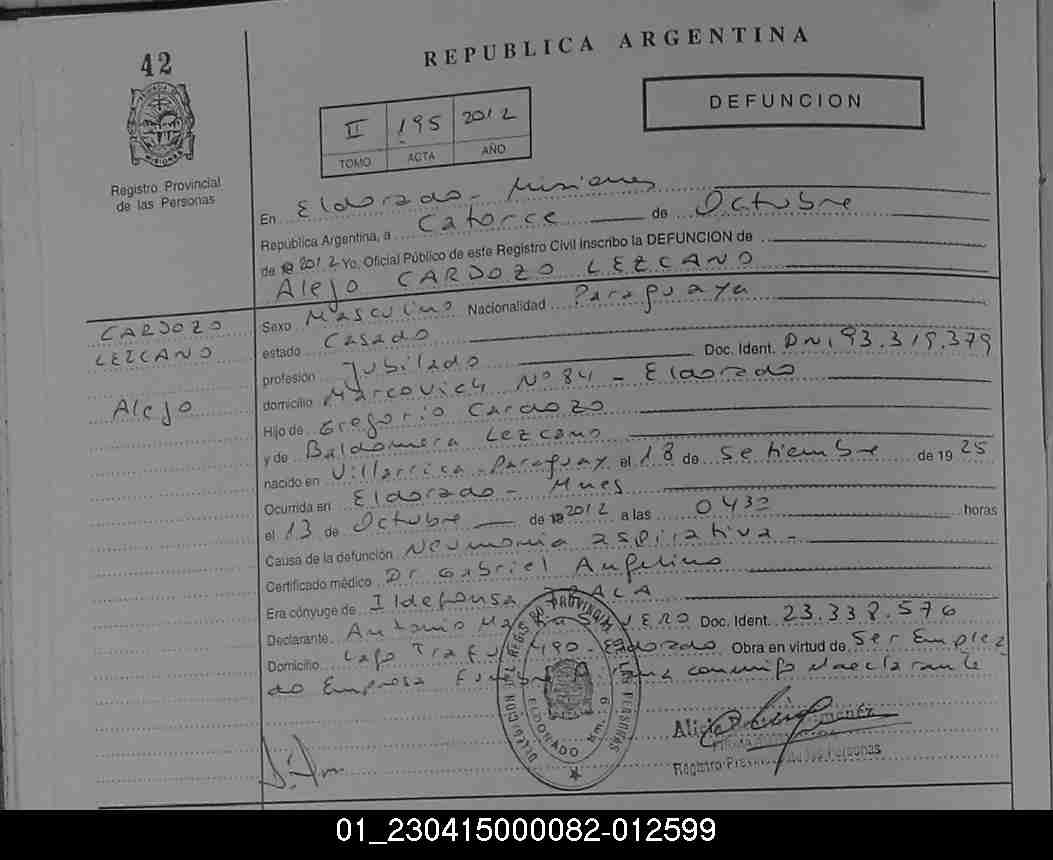 42
REPUBLICA ARGENTINA
DEFUNCION
II 195 2012
TOMO ACTA AÑO
Registro Provincial
de las Personas
En Eldorado - Misiones
Republica Argentina, a Catorce de Octubre
de 2012 Yo, Oficial Público de este Registro Civil inscribo la DEFUNCION de
Alejo CARDOZO LEZCANO
CARDOZO
LEZCANO
Alejo
Sexo Masculino Nacionalidad Paraguaya
estado Casado
profesión Jubilado Doc. Ident. DNI 93.319.379
domicilio Marcovich Nº 84 - Eldorado
Hijo de Gregorio Cardozo
y de Baldomera Lezcano
nacido en Villarrica - Paraguay el 18 de Setiembre de 19 25
Ocurrida en Eldorado - Mnes
el 13 de Octubre de 2012 a las 0430 horas
Causa de la defunción Neumonia aspirativa -
Certificado médico Dr Gabriel Angelino
Era cónyuge de Ildefonsa
Declarante Antonio Doc. Ident. 23.338.576
Domicilio Lago 490 - Eldorado Obra en virtud de Ser Emplea
do Empresa conmigo el declarante
DELEGACION DEL REGISTRO PROVINCIAL DE LAS PERSONAS
ELDORADO
Alicia
Registro Prov. de las Personas
01_230415000082-012599